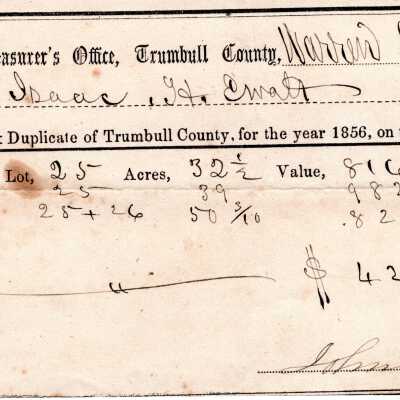 easurer's Office, Trumbull County, Warren
Isaac H. Ewalt
Duplicate of Trumbull County, for the year 1856, on
Lot, 25 Acres, 32 1/2 Value, 816
25 39 982
25 + 26 50 3/10 .82
" $ 42
John